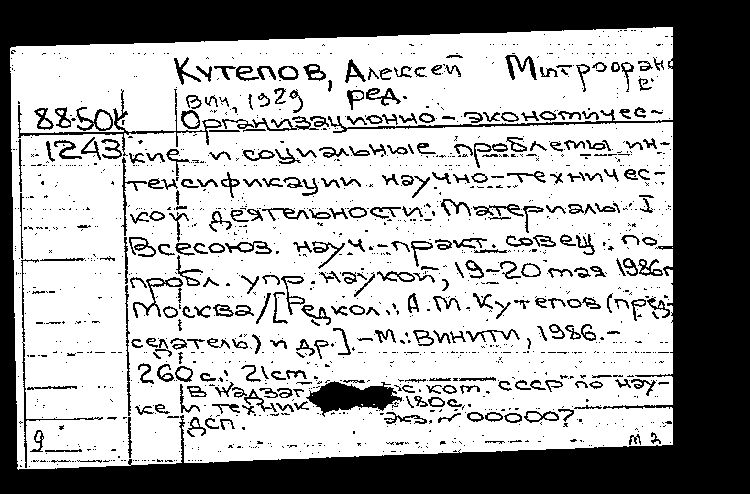 Кутепов, Алексей Митрофано
вич, 1929 ред.
88-50к Организационно-экономичес-
1243 кие и социальные проблемы ин-
тенсификации научно-техничес-
кой деятельности: Материалы I
Всесоюз. науч.-практ. совещ. по
пробл. упр. наукой, 19-20 мая 1986г
Москва/[Редкол.: А.М.Кутепов(пред-
седатель) и др.].-М.:ВИНИТИ, 1986.-
260с.; 21см.
В надзаг. с. ком. СССР по нау-
ке и техник 180с.
ДСП. экз.№000007.
9